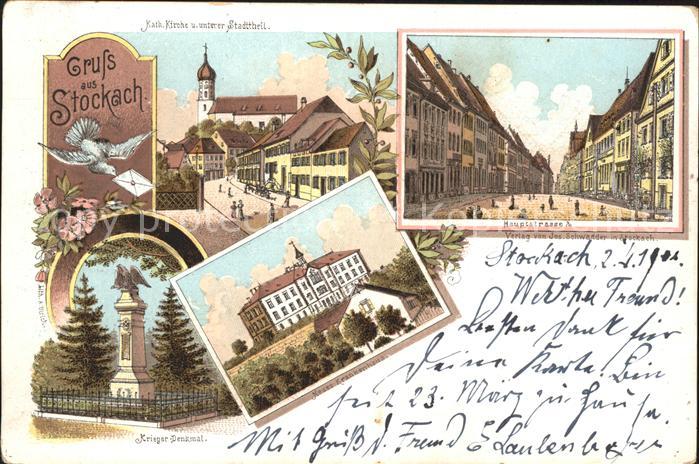 Kath. Kirche u. unterer Stadttheil.
Gruß
aus
Stockach
Hauptstrasse
Verlag von Jos. Schwädder in Stockach.
Neues Krankenhaus
Krieger Denkmal.
Stockach, 2.4.1901.
Werther Freund!
Besten Dank für
Deine Karte. Bin
seit 23. März zu Hause.
Mit Gruß d. Freund E